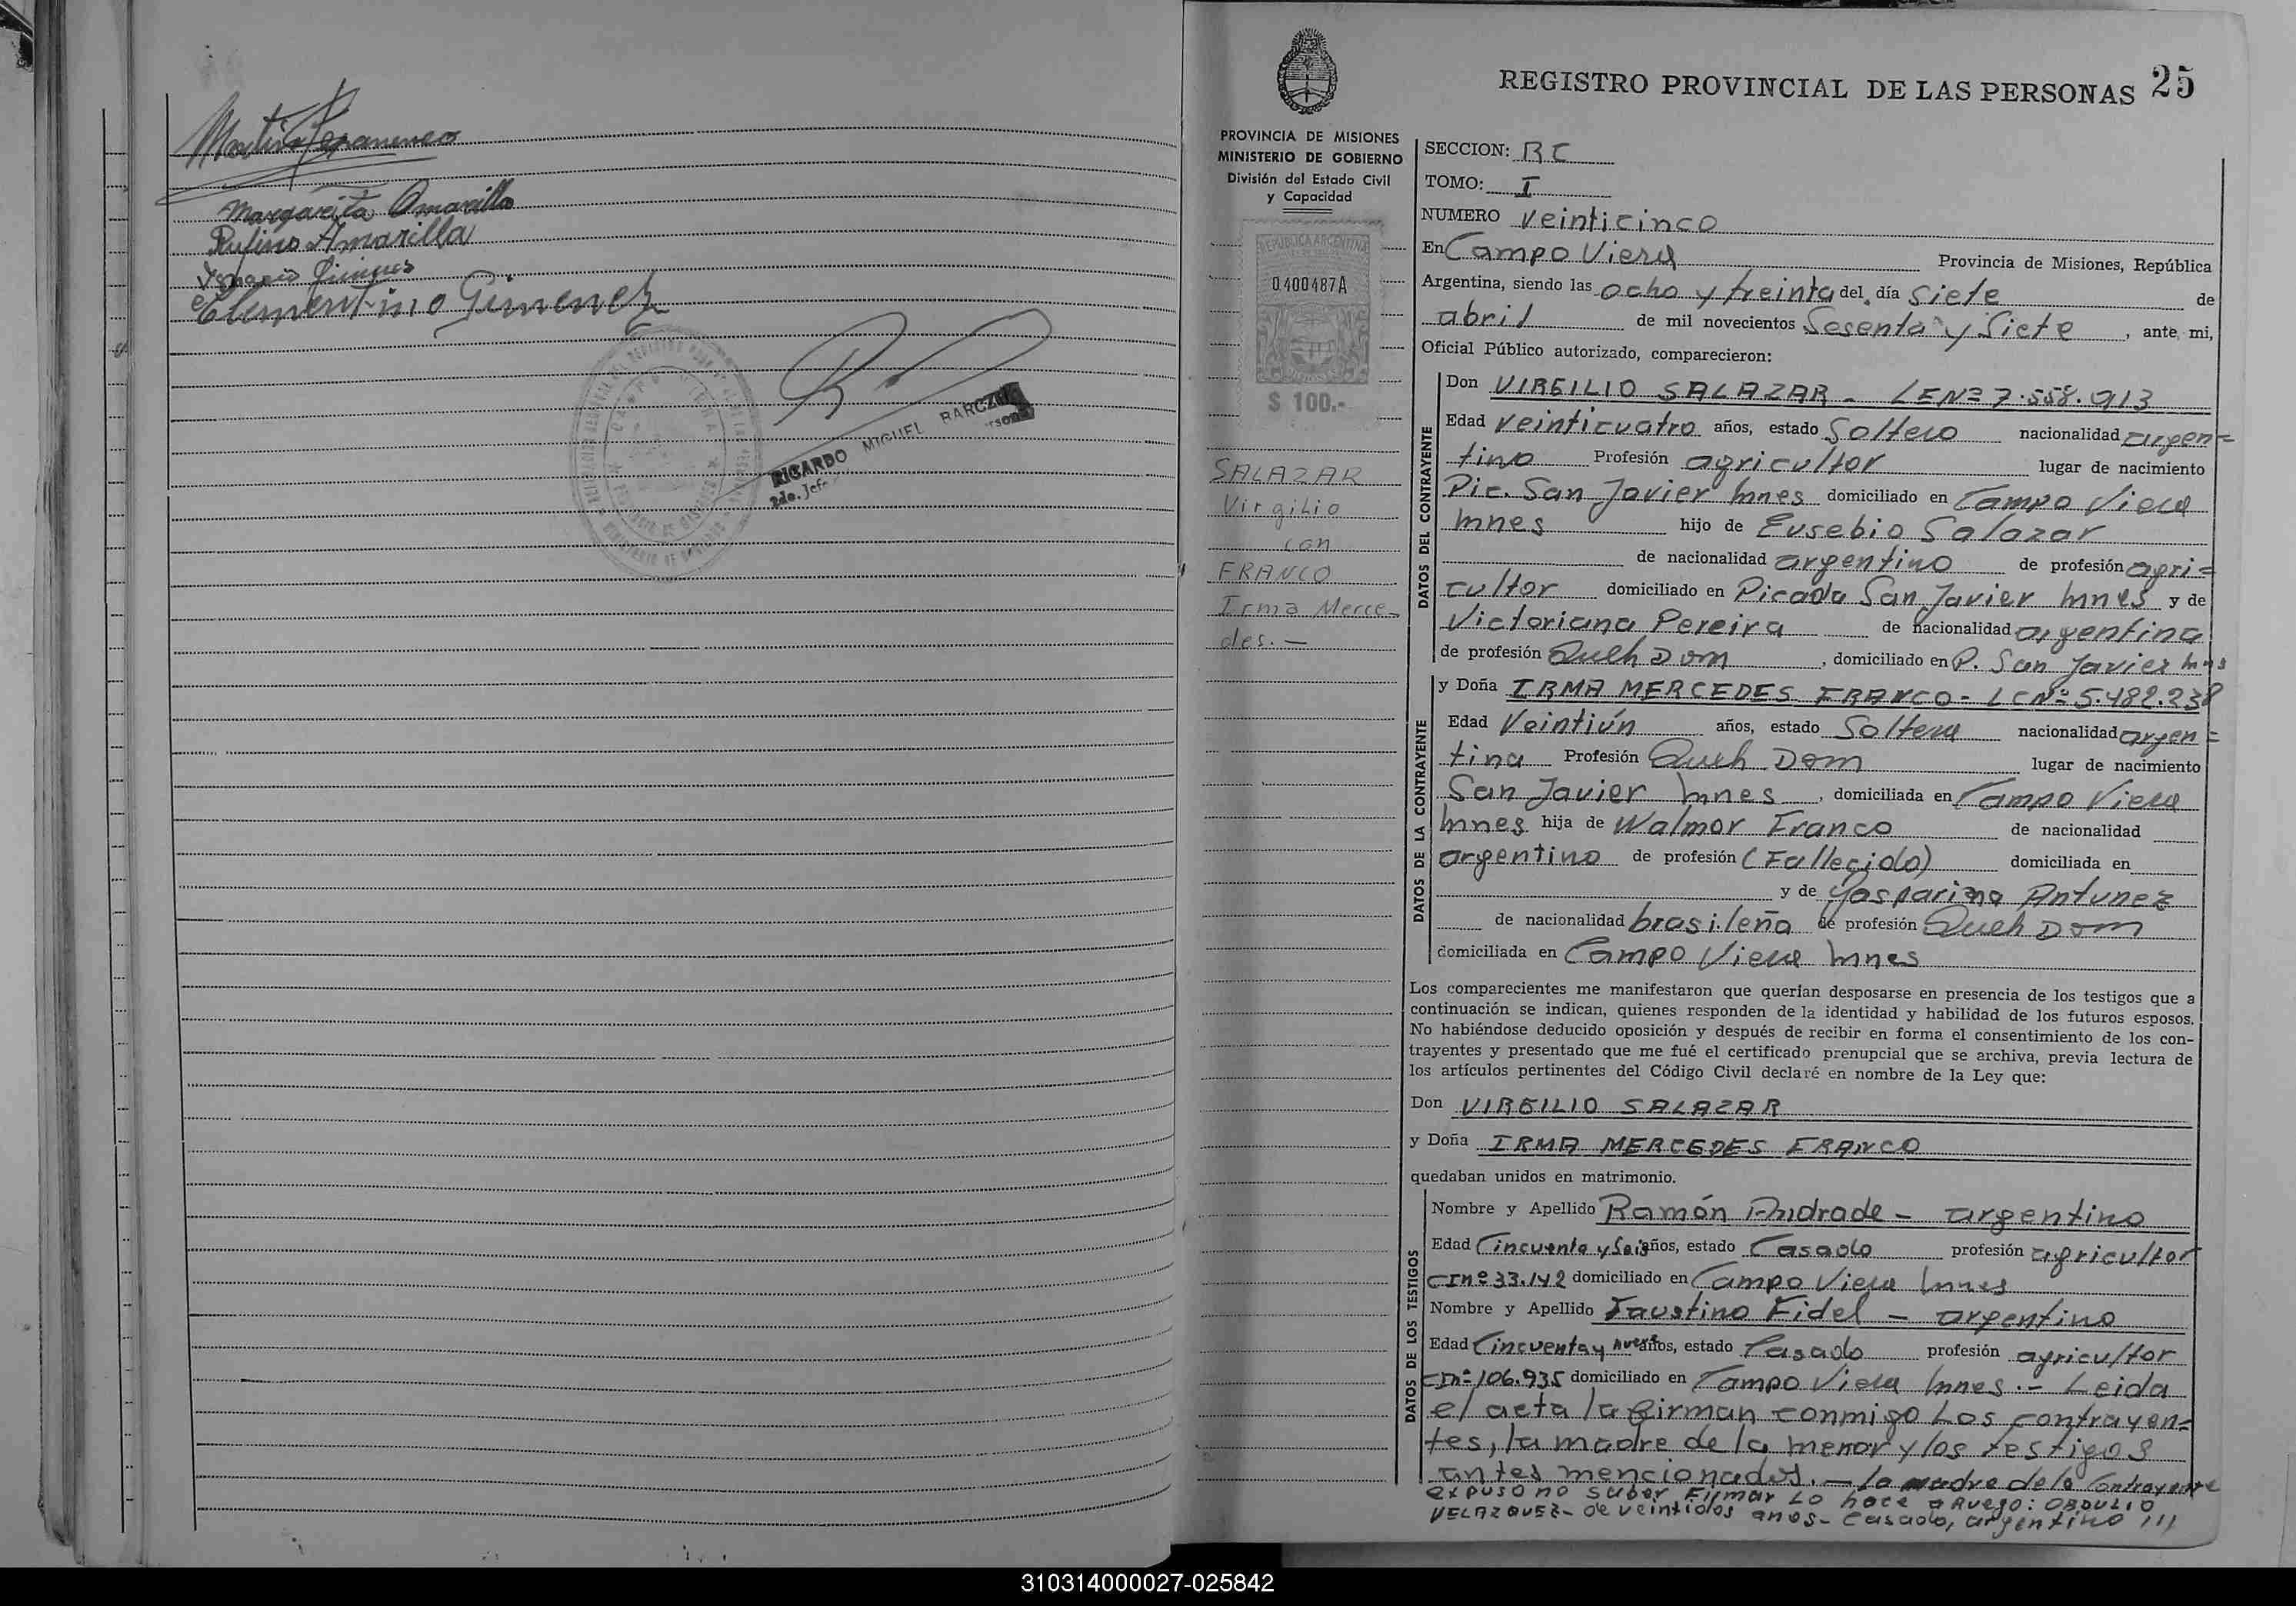 Margarita Amarilla
Rufino Amarilla
Clementino Gimenez
RICARDO MIGUEL BARCZUK
2do. Jefe
REGISTRO PROVINCIAL DE LAS PERSONAS 25
PROVINCIA DE MISIONES
MINISTERIO DE GOBIERNO
División del Estado Civil
y Capacidad
REPUBLICA ARGENTINA
0400487A
MISIONES
$ 100.-
SALAZAR
Virgilio
con
FRANCO
Irma Merce-
des.-
SECCION: RC
TOMO: I
NUMERO veinticinco
En Campo Viera Provincia de Misiones, República
Argentina, siendo las ocho y treinta del día siete de
abril de mil novecientos Sesenta y Siete, ante mi,
Oficial Público autorizado, comparecieron:
DATOS DEL CONTRAYENTE
Don VIRGILIO SALAZAR - LENº 7.558.913
Edad veinticuatro años, estado Soltero nacionalidad argen=
tino Profesión agricultor lugar de nacimiento
Pic. San Javier Mnes domiciliado en Campo Viera
Mnes hijo de Eusebio Salazar
de nacionalidad argentino de profesión agri=
cultor domiciliado en Picada San Javier Mnes y de
Victoriana Pereira de nacionalidad argentina
de profesión Queh Dom, domiciliado en P. San Javier Mns
DATOS DE LA CONTRAYENTE
y Doña IRMA MERCEDES FRANCO - LCNº 5.482.238
Edad Veintiún años, estado Soltera nacionalidad argen=
tina Profesión Queh Dom lugar de nacimiento
San Javier Mnes, domiciliada en Campo Viera
Mnes hija de Walmor Franco de nacionalidad
argentino de profesión (Fallecido) domiciliada en
y de Gasparina Antunez
de nacionalidad brasileña de profesión Queh Dom
domiciliada en Campo Viera Mnes
Los comparecientes me manifestaron que querían desposarse en presencia de los testigos que a
continuación se indican, quienes responden de la identidad y habilidad de los futuros esposos.
No habiéndose deducido oposición y después de recibir en forma el consentimiento de los con-
trayentes y presentado que me fué el certificado prenupcial que se archiva, previa lectura de
los artículos pertinentes del Código Civil declaré en nombre de la Ley que:
Don VIRGILIO SALAZAR
y Doña IRMA MERCEDES FRANCO
quedaban unidos en matrimonio.
DATOS DE LOS TESTIGOS
Nombre y Apellido Ramón Andrade - argentino
Edad Cincuenta y Seis años, estado Casado profesión agricultor
CInº 33.142 domiciliado en Campo Viera Mnes
Nombre y Apellido Faustino Fidel - argentino
Edad Cincuenta y nueve años, estado Casado profesión agricultor
CInº 106.935 domiciliado en Campo Viera Mnes.- Leida
el acta la firman conmigo los contrayen=
tes, la madre de la menor y los testigos
antes mencionados.- la madre de la Contrayente
expuso no saber Firmar Lo hace a Ruego: OBDULIO
VELAZQUEZ- de veintidos años- Casado, argentino ///
310314000027-025842